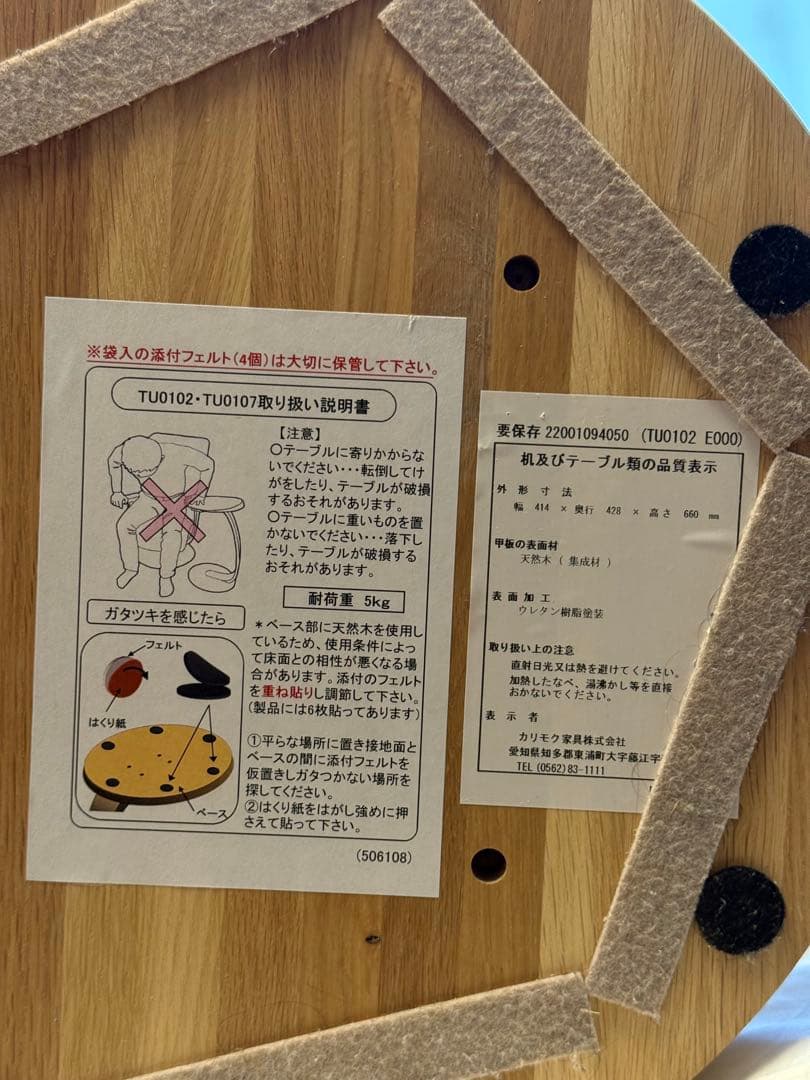 ※袋入の添付フェルト(4個)は大切に保管して下さい。
TU0102・TU0107取り扱い説明書
【注意】
○テーブルに寄りかからな
いでください・・・転倒してけ
がをしたり、テーブルが破損
するおそれがあります。
○テーブルに重いものを置
かないでください・・・落下し
たり、テーブルが破損する
おそれがあります。
耐荷重 5kg
ガタツキを感じたら
フェルト
はくり紙
ベース
*ベース部に天然木を使用し
ているため、使用条件によっ
て床面との相性が悪くなる場
合があります。添付のフェルト
を重ね貼りし調節して下さい。
(製品には6枚貼ってあります)
①平らな場所に置き接地面と
ベースの間に添付フェルトを
仮置きしガタつかない場所を
探してください。
②はくり紙をはがし強めに押
さえて貼って下さい。
(506108)
要保存 22001094050 (TU0102 E000)
机及びテーブル類の品質表示
外形寸法
幅 414 × 奥行 428 × 高さ 660 mm
甲板の表面材
天然木 ( 集成材 )
表面加工
ウレタン樹脂塗装
取り扱い上の注意
直射日光又は熱を避けてください。
加熱したなべ、湯沸かし等を直接
おかないでください。
表示者
カリモク家具株式会社
愛知県知多郡東浦町大字藤江字
TEL (0562) 83-1111